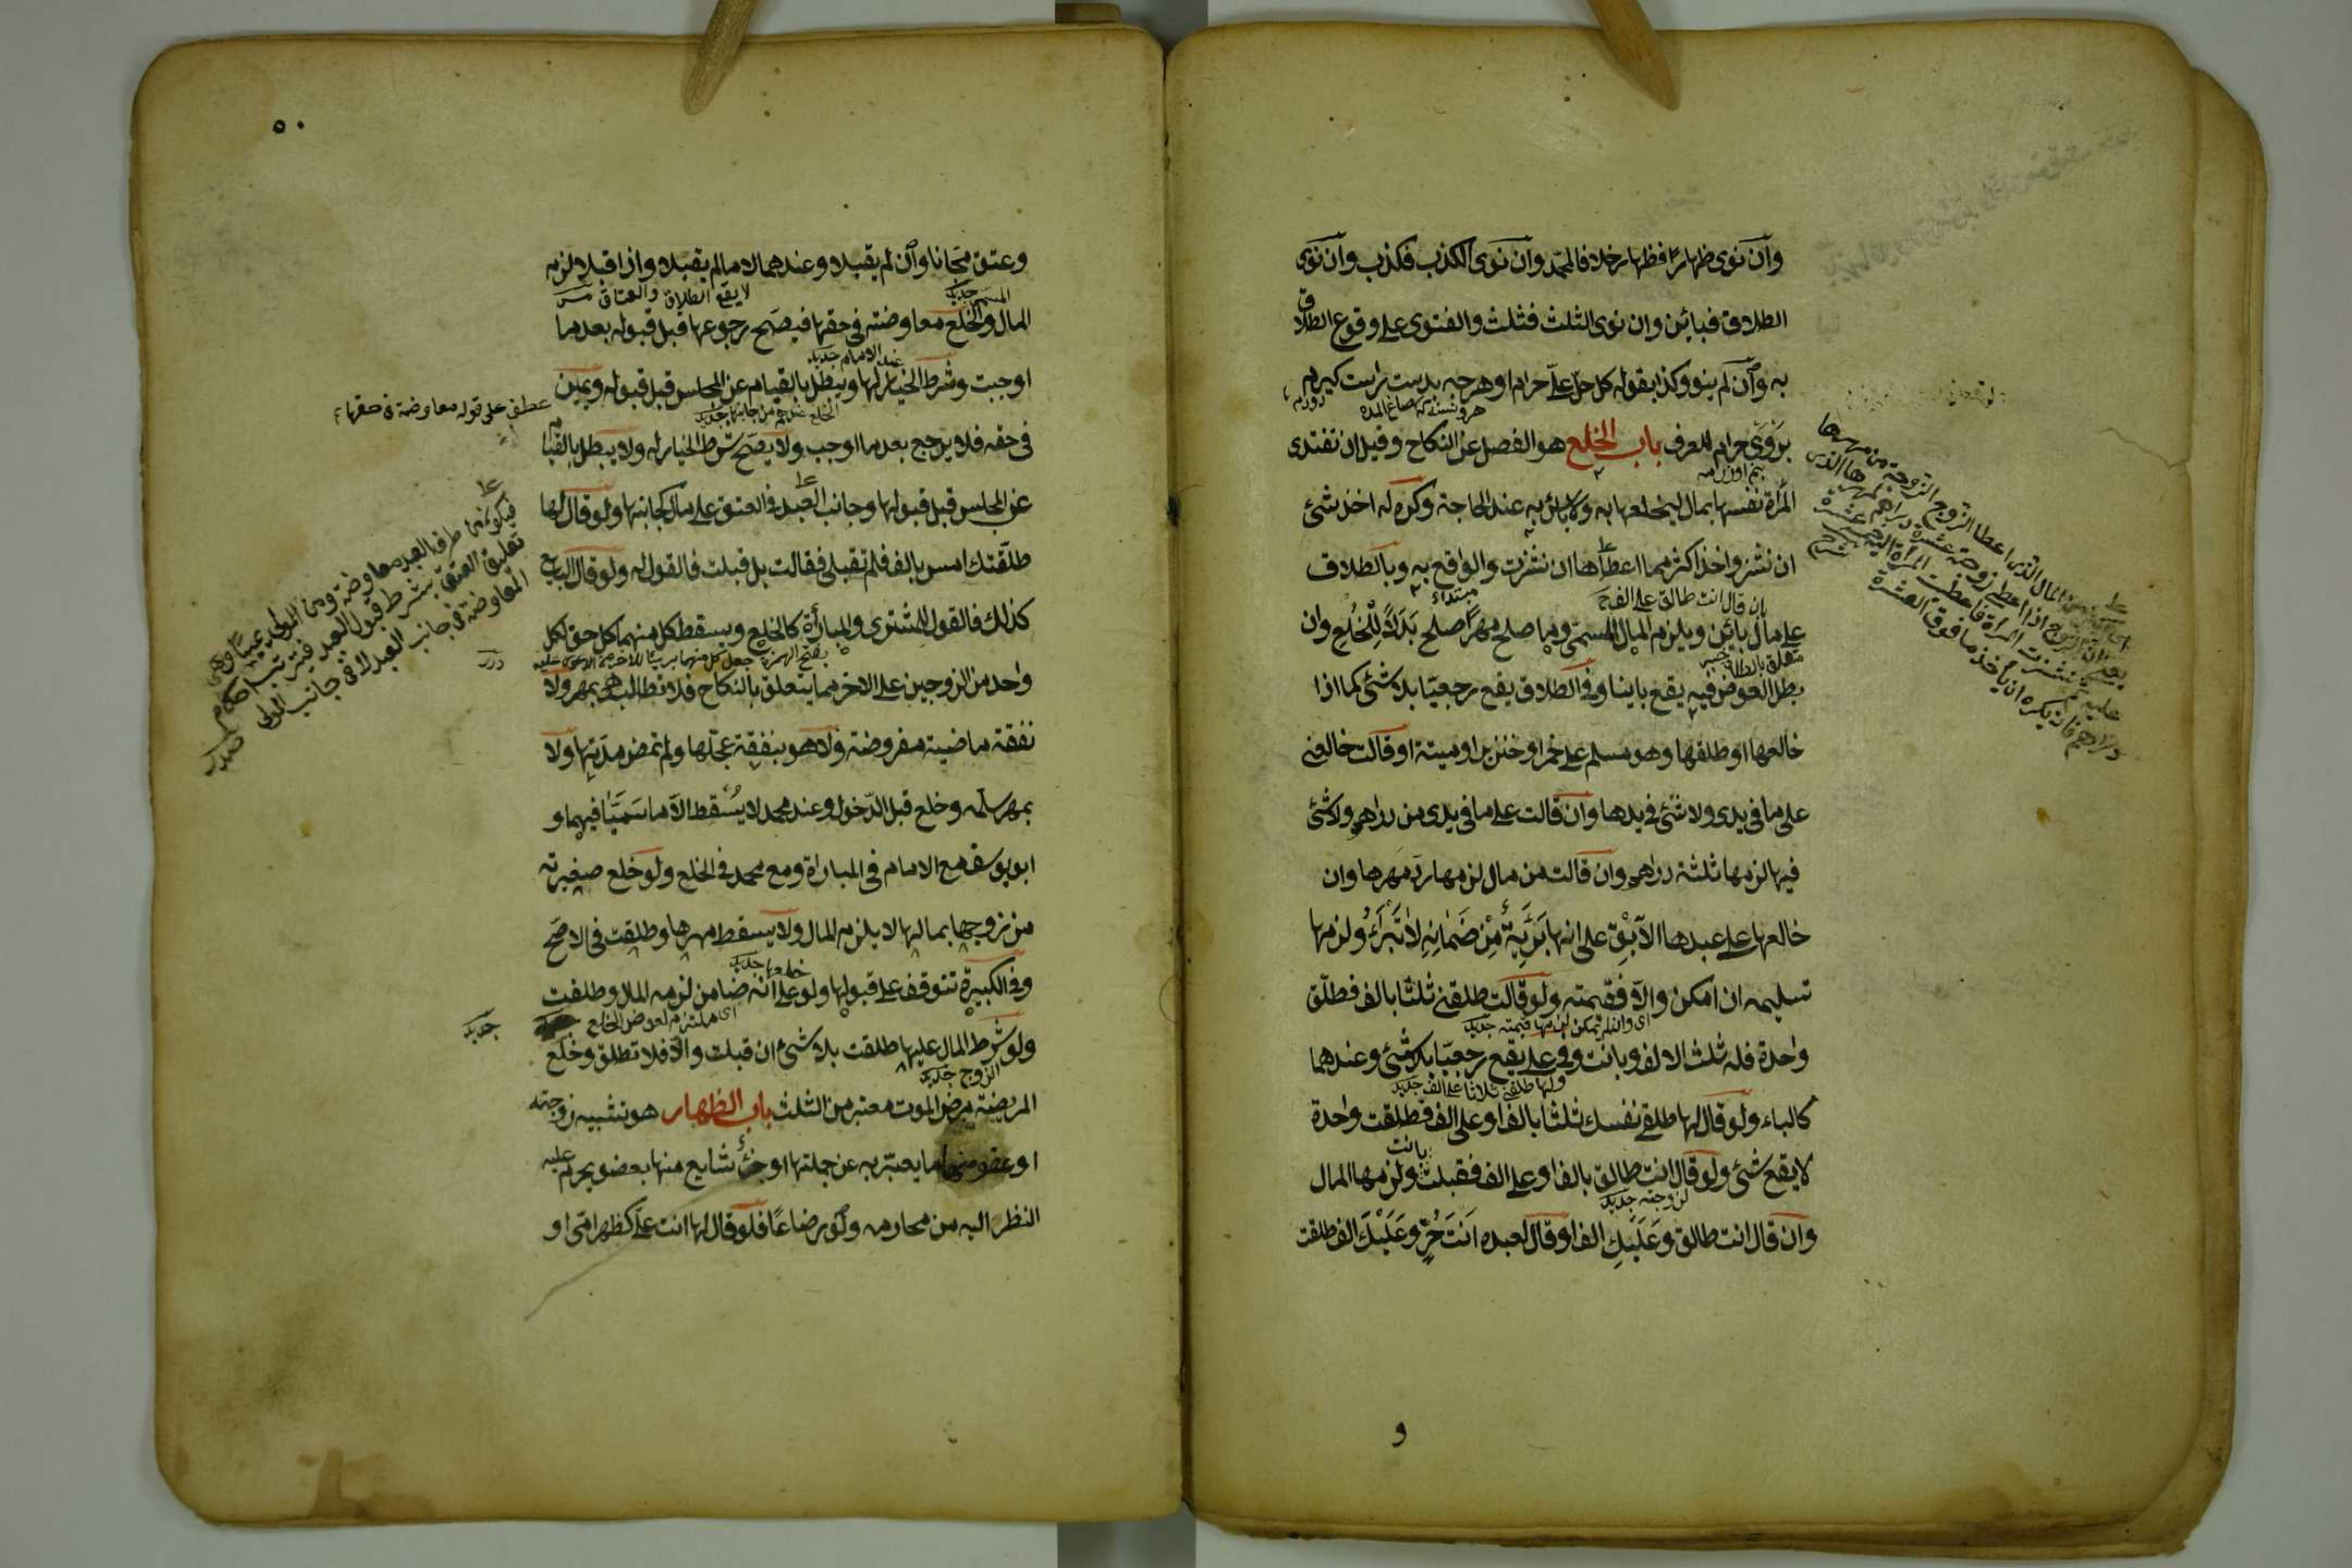 وان نوى ظهارا فظهار خلافا لمحمد وان نوى الكذب فكذب وان نوى
الطلاق فبائن وان نوى الثلث فثلث والفتوى على وقوع الطلاق
به وان لم ينو وكذا بقوله كل حل علىّ حرام او هرچه بدست راست كيرم
بر وى حرام للعرف باب الخلع هو الفصل عن النكاح وقيل ان تفتدى
المرأة نفسها بمال ليخلعها به ولا بأس به عند الحاجة وكره له اخذ شئ
ان نشز واخذ اكثر مما اعطاها ان نشزت والواقع به وبالطلاق
بان قال انت طالق على الف
مبتداء
على مال بائن ويلزم المال المسمى وما صلح مهرا صلح بدلا للخلع وان
متعلق بالطلاق
خبر
بطل العوض فيه يقع باينا وفى الطلاق يقع رجعيا بلا شئ كما اذا
خالعها او طلقها وهو مسلم على خمر او خنزير او ميتة او قالت خالعنى
على ما فى يدى ولا شئ فى يدها وان قالت على ما فى يدى من دراهم ولا شئ
فيها لزمها ثلثة دراهم وان قالت من مال لزمها رد مهرها وان
خالعها على عبدها الآبق على انها بَرِيَّةٌ مِنْ ضَمَانِهِ لا تَبْرَأُ ولزمها
تسليمه ان امكن والّا فقيمته ولو قالت طلقنى ثلثا بالف فطلّق
اى وان لم يمكن لزمها قيمته جديد
واحدة فله ثلث الالف وبانت وفى على يقع رجعيّا بلا شئ وعندهما
ولها طلقنى ثلاثا على الف جديد
كالباء ولو قال لها طلقى نفسك ثلثا بالف او على الف فطلقت واحدة
بانت
لا يقع شئ ولو قال انت طالق بالف او على الف فقبلت ولزمها المال
لزوجته جديد
وان قال انت طالق وعَلَيْكِ الف او قال لعبده اَنتَ حُرّ وعَلَيْكَ الف طلقت
و
٥٠
وعتق مجانا وان لم يقبلا وعندهما لا ما لم يقبلا واذا قبلا لزم
المسمى جديد
لا يقع الطلاق والعتاق
المال والخلع معاوضة فى حقها فيصح رجوعها قبل قبوله بعد ما
عند الامام جديد
اوجبت وشرط الخيار لها ويبطل بالقيام عن المجلس قبل قبوله ويمين
عطف على قوله معاوضة فى حقها
فى حقه فلا يرجع بعد ما اوجب ولا يصحّ شرط الخيار له ولا يبطل بالقيام
عن المجلس قبل قبولها وجانب العبد فى العتق على مال كجانبها ولو قال لها
طلّقتك امس بالف فلم تقبلى فقالت بل قبلت فالقول له ولو قال البايع
كذلك فالقول للمشترى والمبارأة كالخلع ويسقط كل منهما كل حق لكل
واحد من الزوجين على الاخر مما يتعلق بالنكاح فلا تطالب هى بمهر ولا
نفقة ماضية مفروضة ولا هو بنفقة عجّلها ولم تمض مدّتها ولا
بمهر سلّمه وخلع قبل الدّخول وعند محمد لا يُسقط الّا ما سَمَّيَا فيهما و
ابو يوسف مع الامام فى المبارأة ومع محمد فى الخلع ولو خلع صغيرته
من زوجها بمالها لا يلزم المال ولا يسقط مهرها وطلقت فى الاصحّ
خلعها جديد
وفى الكبيرة تتوقف على قبولها ولو على انّه ضامن لزمه المال وطلقت
اى ملتزم لعوض الخلع
جديد
ولو شرط المال عليها طلقت بلا شئ ان قبلت والّا فلا تطلق وخلع
الزوج جديد
المريضة مرض الموت معتبر من الثلث باب الظهار هو تشبيه زوجته
او عضو منها ما يعبّر به عن جملتها او جزء شايع منها بعضو يحرم عليه
النظر اليه من محارمه ولو رضاعًا فلو قال لها انت علىّ كظهر امّى او
فيكون من طرف العبد معاوضة ومن المولى يمينًا وهى
تعليق العتق بشرط قبول العبد فيترتب احكام
المعاوضة فى جانب العبد لا فى جانب المولى